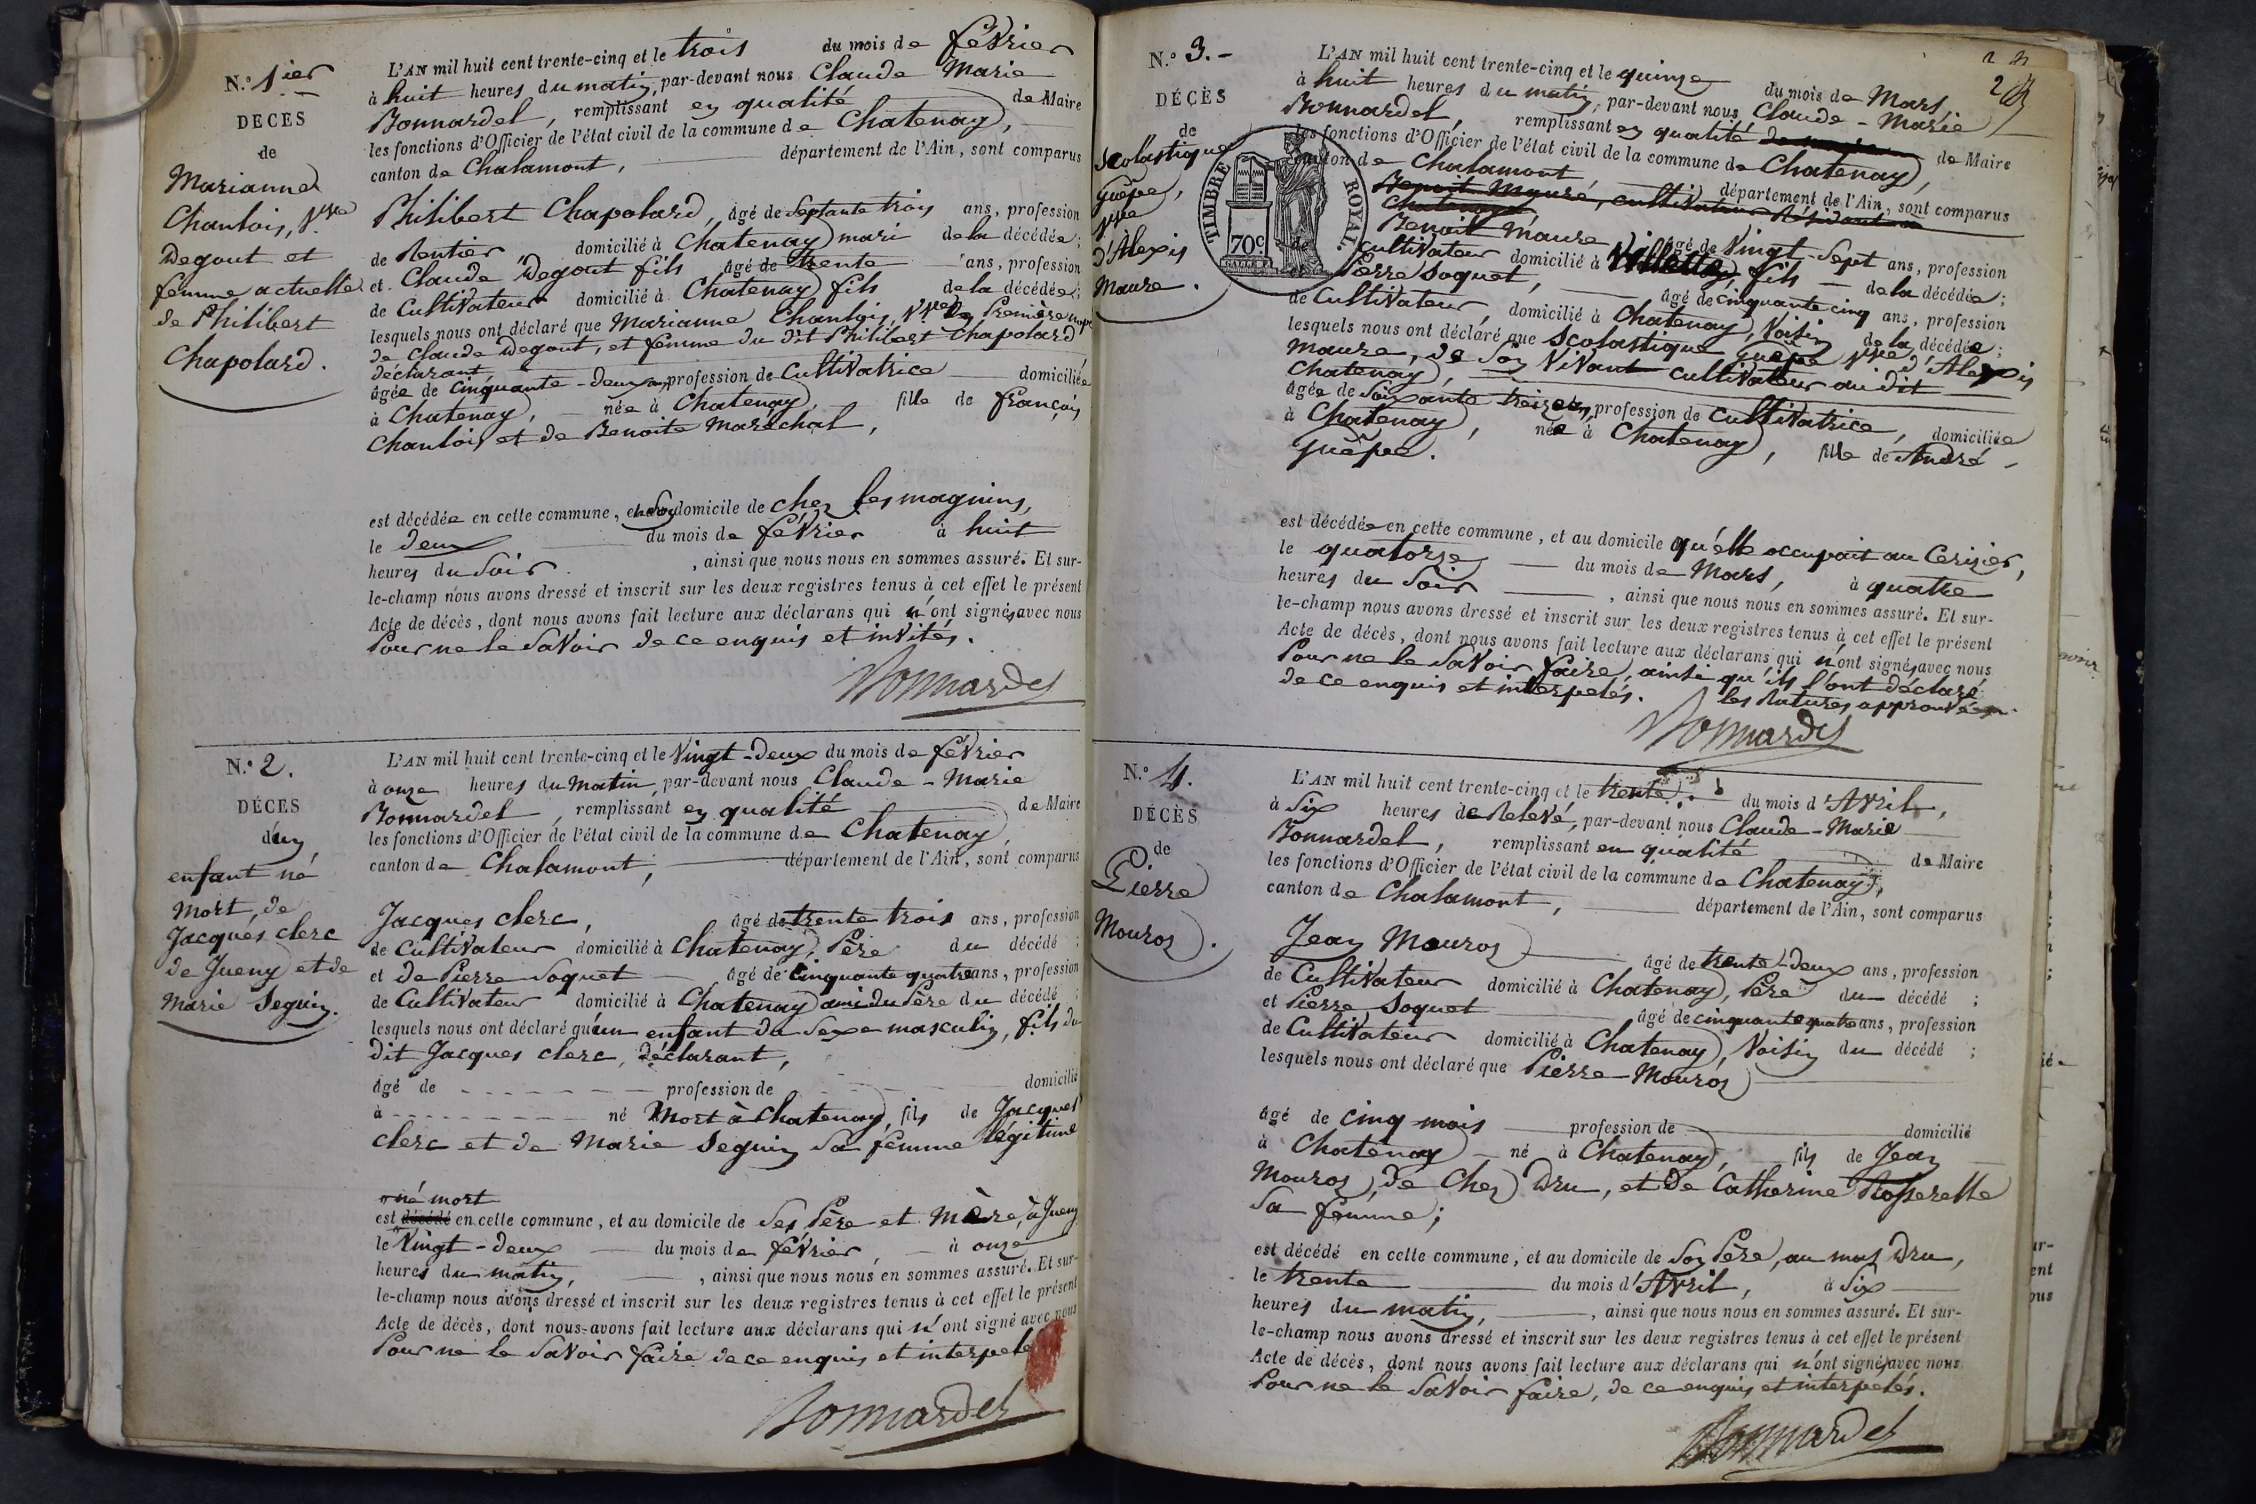 N.º 1.ier
DECES
de
Marianne
Chanlois, V.ve
Degout et
femme actuelle
de Philibert
Chapolard.
L'AN mil huit cent trente-cinq et le trois du mois de février
à huit heures du matin, par-devant nous Claude Marie
Bonnardel, remplissant en qualité de Maire
les fonctions d'Officier de l'état civil de la commune de Chatenay,
canton de Chalamont, département de l'Ain, sont comparus
Philibert Chapolard, âgé de Septante trois ans, profession
de Rentier, domicilié à Chatenay mari de la décédée;
et Claude Degout fils âgé de trente ans, profession
de Cultivateur domicilié à Chatenay fils de la décédée;
lesquels nous ont déclaré que Marianne Chanlois, V.ve en Première
de Claude Degout, et femme du dit Philibert Chapolard
déclarant
âgée de cinquante-deux ans, profession de Cultivatrice domiciliée
à Chatenay, née à Chatenay, fille de françois
Chanlois et de Benoite Maréchal,
est décédée en cette commune, en son domicile de chez les magnins,
le deux du mois de février à huit
heures du Soir, ainsi que nous nous en sommes assuré. Et sur-
le-champ nous avons dressé et inscrit sur les deux registres tenus à cet effet le présent
Acte de décès, dont nous avons fait lecture aux déclarans qui n'ont signés avec nous
Pour ne le Savoir de ce enquis et invités.
Bonnardel
N.º 2.
DÉCES
d'un
enfant né
Mort, de
Jacques clerc
de Jueny et de
Marie Seguin.
L'AN mil huit cent trente-cinq et le Vingt-deux du mois de février
à onze heures du Matin, par-devant nous Claude-Marie
Bonnardel, remplissant en qualité de Maire
les fonctions d'Officier de l'état civil de la commune de Chatenay,
canton de Chalamont, département de l'Ain, sont comparus
Jacques clerc, âgé de trente trois ans, profession
de Cultivateur domicilié à Chatenay, Père du décédé;
et de Pierre Soquet âgé de Cinquante quatre ans, profession
de Cultivateur domicilié à Chatenay ami du Père du décédé;
lesquels nous ont déclaré qu'un enfant du Sexe masculin, fils du
dit Jacques clerc, déclarant,
âgé de profession de domicilié
à né Mort à Chatenay, fils de Jacques
clerc et de Marie Seguin Sa femme légitime
né mort
est décédé en cette commune, et au domicile de Ses Père et Mère, à Jueny
le Vingt-deux du mois de février, à onze
heures du matin, ainsi que nous nous en sommes assuré. Et sur-
le-champ nous avons dressé et inscrit sur les deux registres tenus à cet effet le présent
Acte de décès, dont nous avons fait lecture aux déclarans qui n'ont signé avec nous
Pour ne le Savoir faire de ce enquis et interpelé
Bonnardel
N.º 3.
DÉCÈS
de
Scolastique
Guêpe,
V.ve
d'Alexis
Maure.
TIMBRE ROYAL.
70c
L'AN mil huit cent trente-cinq et le quinze du mois de Mars,
à huit heures du matin, par-devant nous Claude-Marie
Bonnardel, remplissant en qualité de Maire
les fonctions d'Officier de l'état civil de la commune de Chatenay,
canton de Chalamont, département de l'Ain, sont comparus
Benoit Mauré, cultivateur Résidant à
Chatenay
Benoit Maure, âgé de Vingt-Sept ans, profession
de Cultivateur domicilié à Villette, fils de la décédée;
Pierre Soquet, âgé de cinquante cinq ans, profession
de Cultivateur, domicilié à Chatenay, Voisin de la décédée;
lesquels nous ont déclaré que Scolastique Guêpe V.ve d'Alexis
Maure, de Son Vivant cultivateur au dit
Chatenay,
âgée de Soixante treize ans, profession de Cultivatrice, domiciliée
à Chatenay, née à Chatenay, fille de André
Guêpe.
est décédée en cette commune, et au domicile qu'elle occupait au Cerisier,
le quatorze du mois de Mars, à quatre
heures du Soir, ainsi que nous nous en sommes assuré. Et sur-
le-champ nous avons dressé et inscrit sur les deux registres tenus à cet effet le présent
Acte de décès, dont nous avons fait lecture aux déclarans qui n'ont signés avec nous
Pour ne le Savoir faire, ainsi qu'ils l'ont déclaré
de ce enquis et interpelés. les Ratures approuvées.
Bonnardel
N.º 4.
DÉCÈS
de
Pierre
Mouroz.
L'AN mil huit cent trente-cinq et le trente du mois d'Avril,
à Six heures de Relevé, par-devant nous Claude-Marie
Bonnardel, remplissant en qualité de Maire
les fonctions d'Officier de l'état civil de la commune de Chatenay,
canton de Chalamont, département de l'Ain, sont comparus
Jean Mouroz âgé de trente-deux ans, profession
de Cultivateur domicilié à Chatenay, Père du décédé;
et Pierre Soquet âgé de cinquante quatre ans, profession
de Cultivateur domicilié à Chatenay, Voisin du décédé;
lesquels nous ont déclaré que Pierre Mouroz
âgé de cinq mois profession de domicilié
à Chatenay né à Chatenay, fils de Jean
Mouroz, de Chez Dru, et de Catherine Rosserette
Sa femme;
est décédé en cette commune, et au domicile de Son Père, au mas Dru,
le trente du mois d'Avril, à Six
heures du matin, ainsi que nous nous en sommes assuré. Et sur-
le-champ nous avons dressé et inscrit sur les deux registres tenus à cet effet le présent
Acte de décès, dont nous avons fait lecture aux déclarans qui n'ont signés avec nous
Pour ne le Savoir faire, de ce enquis et interpelés.
Bonnardel